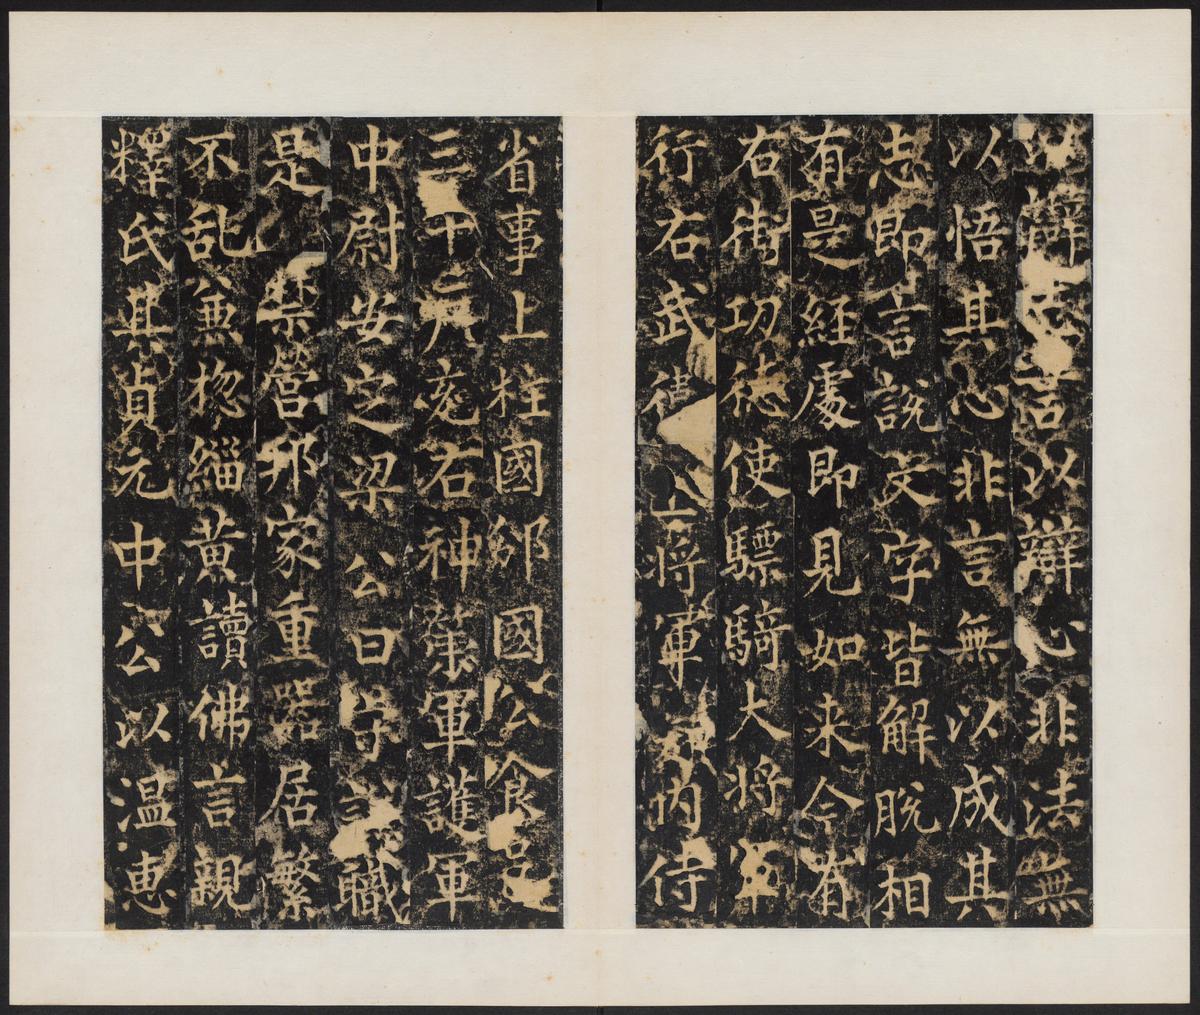 以辯言以辯心非法無
以悟其心非言無以成其
志即言說文字皆解脫相
有是經處即見如来今有
右街功徳使驃騎大将軍
行右武衛上将軍知内侍
省事上柱國邠國公食邑
三千户充右神策軍護軍
中尉安定梁公曰守謙職
是禁營邦家重器居繁
不乱兼揔緇黄讀佛言親
釋氏其貞元中公以温恵